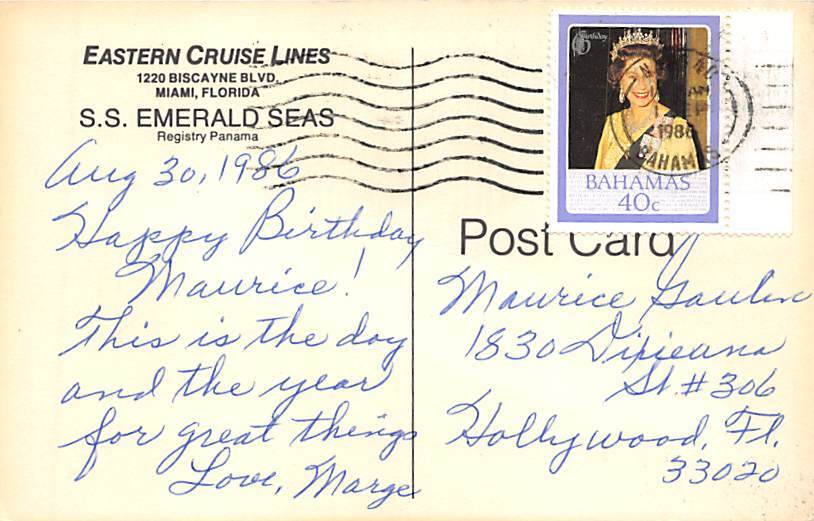 EASTERN CRUISE LINES
1220 BISCAYNE BLVD.
MIAMI, FLORIDA
S.S. EMERALD SEAS
Registry Panama
Aug 30, 1986
Happy Birthday
Maurice!
This is the day
and the year
for great things
Love, Marge
Birthday
BAHAMAS
40c
1986
BAHAMAS
Post Card
Maurice
1830
St. #306
Hollywood, Fl.
33020